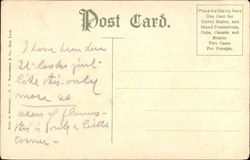 Post Card.
Place the Stamp Here
One Cent for
United States, and
Island Possessions,
Cuba, Canada and
Mexico.
Two Cents
For Foreign.
I have been here
It looks just
like this only
more so
acres of flowers
this is only a little
corner –